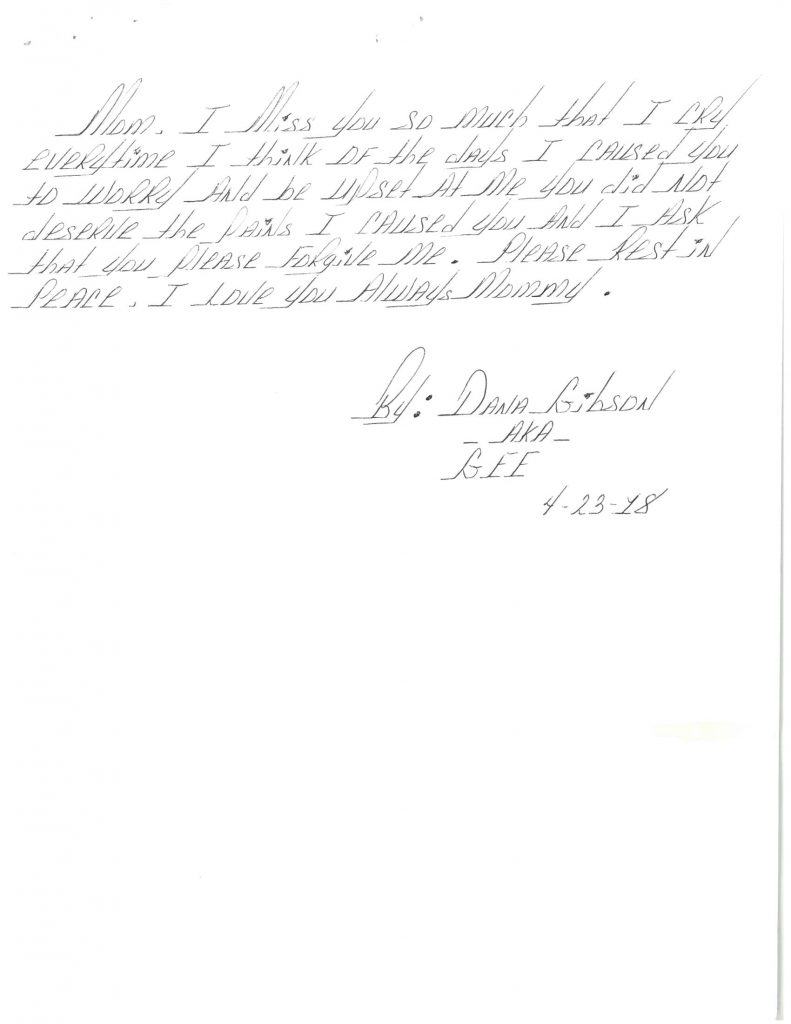 Mom. I Miss you so much that I cry
everytime I think of the days I caused you
to worry and be upset at me you did not
deserve the pains I caused you and I ask
that you please forgive me. Please Rest in
Peace. I Love you Always Mommy.
By: Dana Gibson
- AKA -
GEE
4-23-18